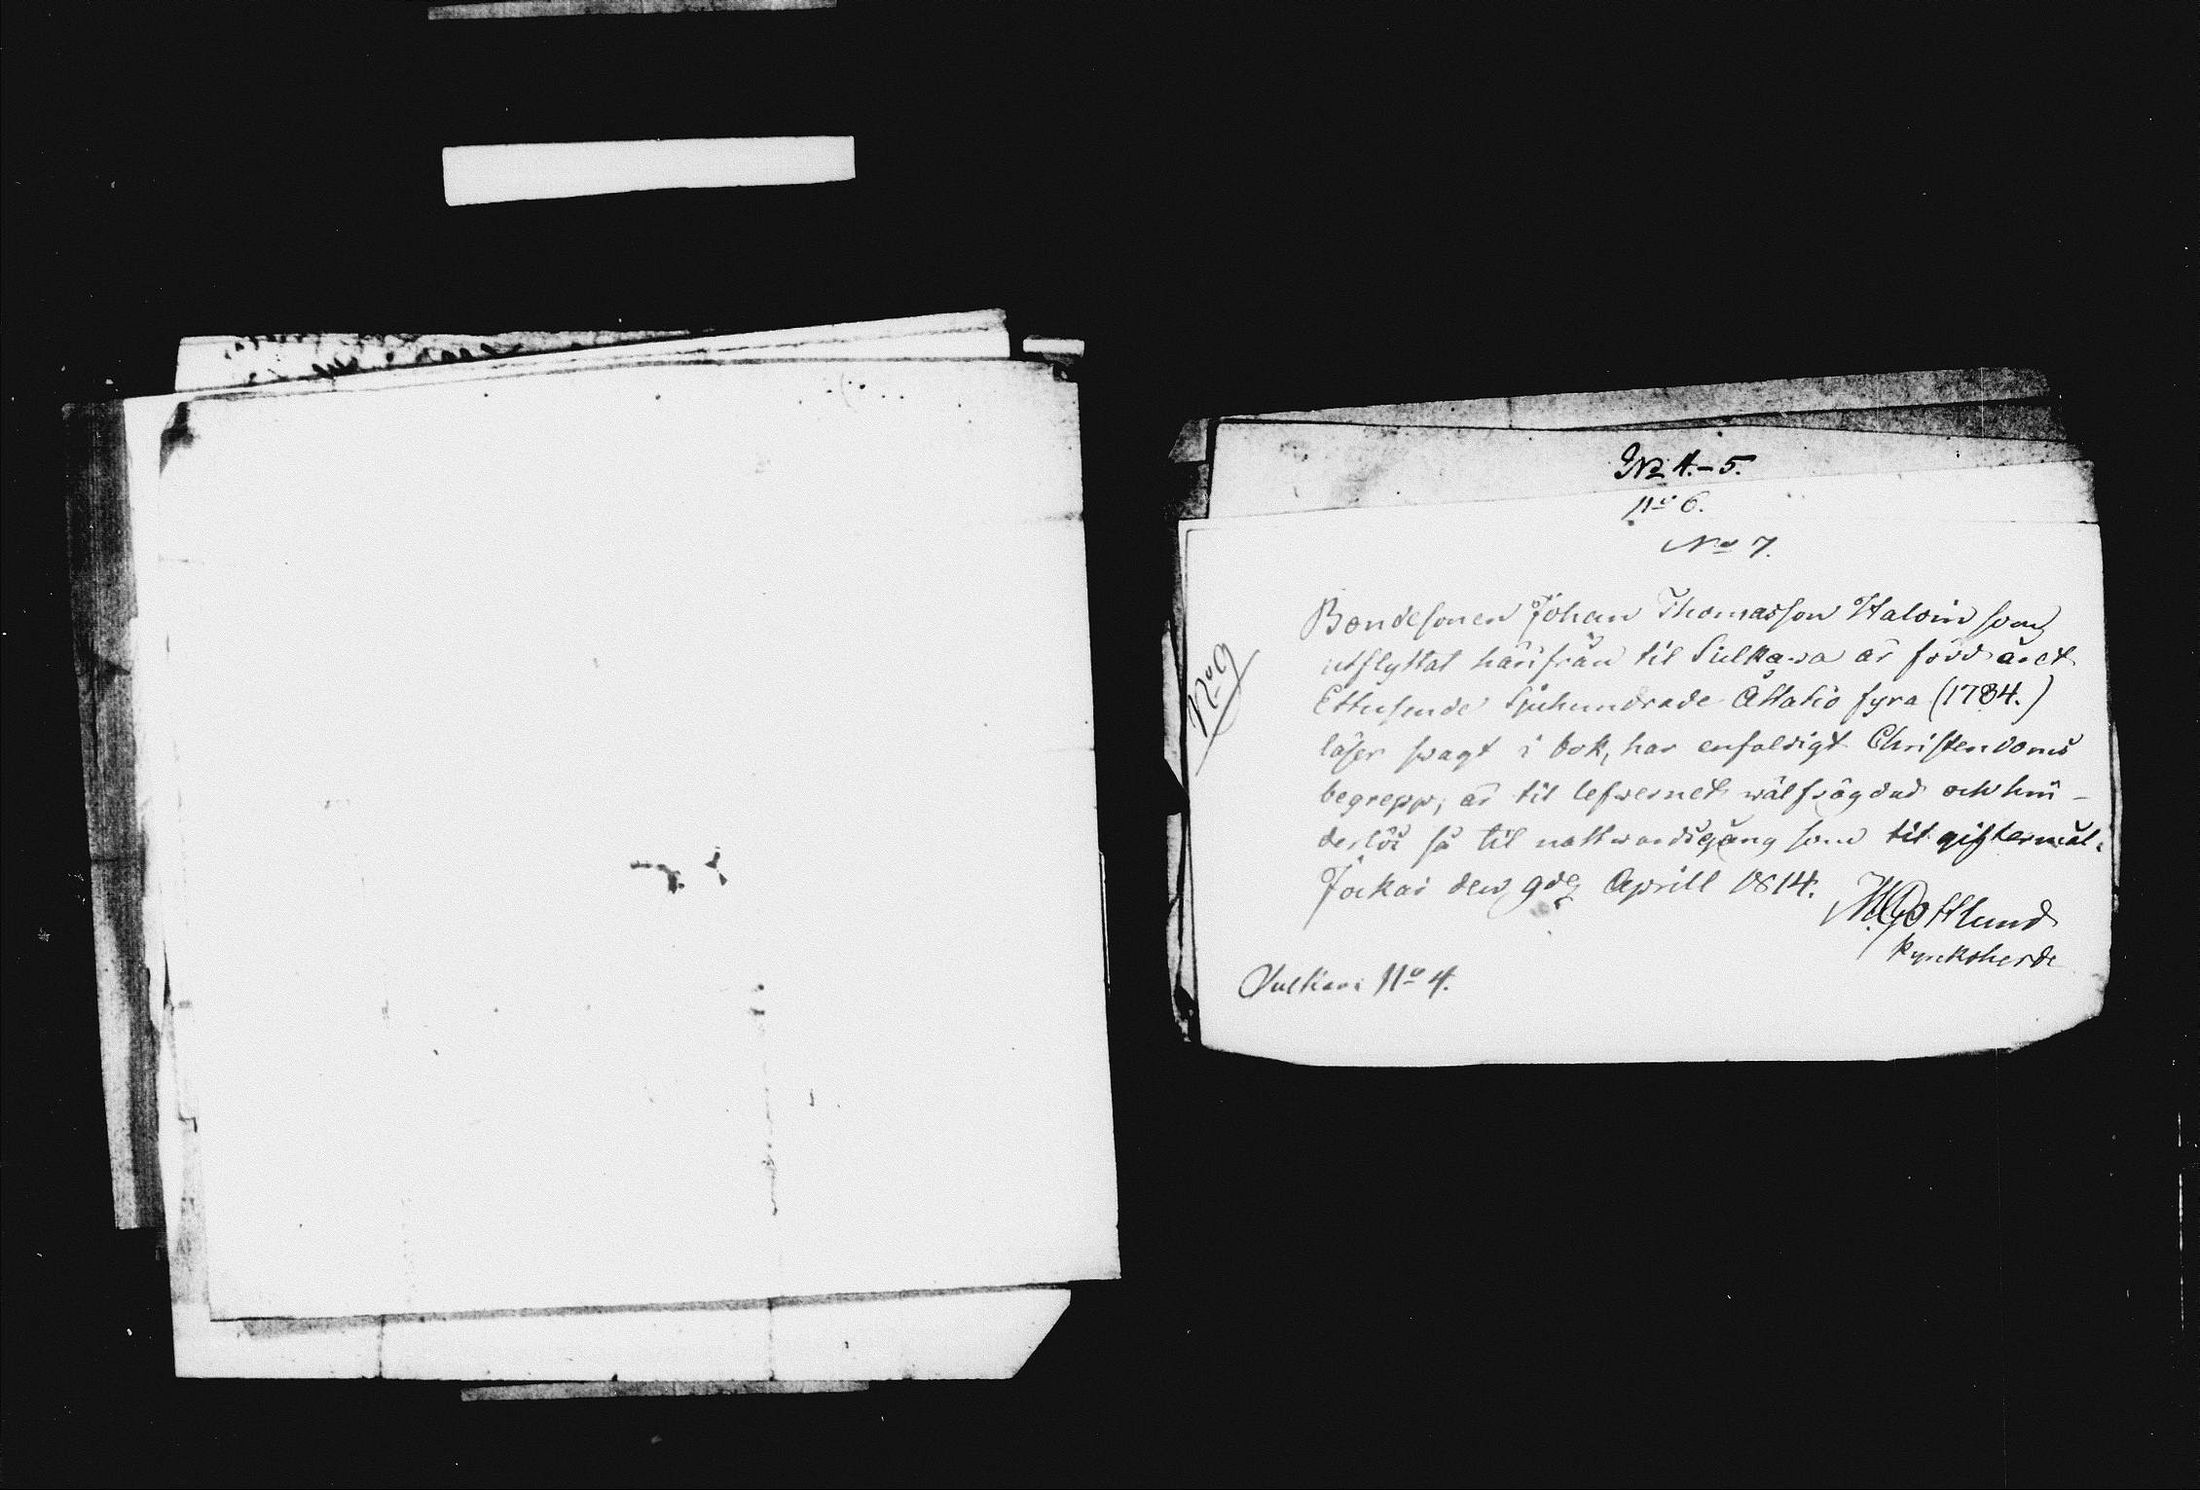 No 4.-5.
No 6.
No 7.
No 9
Bondesonen Johan Thomasson Halvin som
utflyttat härifrån til Sulkava är född året
Ettusende Sjuhundrade Åttatio fyra (1784.)
läser svagt i bok, har enfaldigt Christendoms
begrepp, är til lefvernet välfrägdad och hin-
derlös så til nattvardsgång som til giftermål.
Jockas den 9de Aprill 1814.
M. Gottlund
Kyrkoherde
No 4.